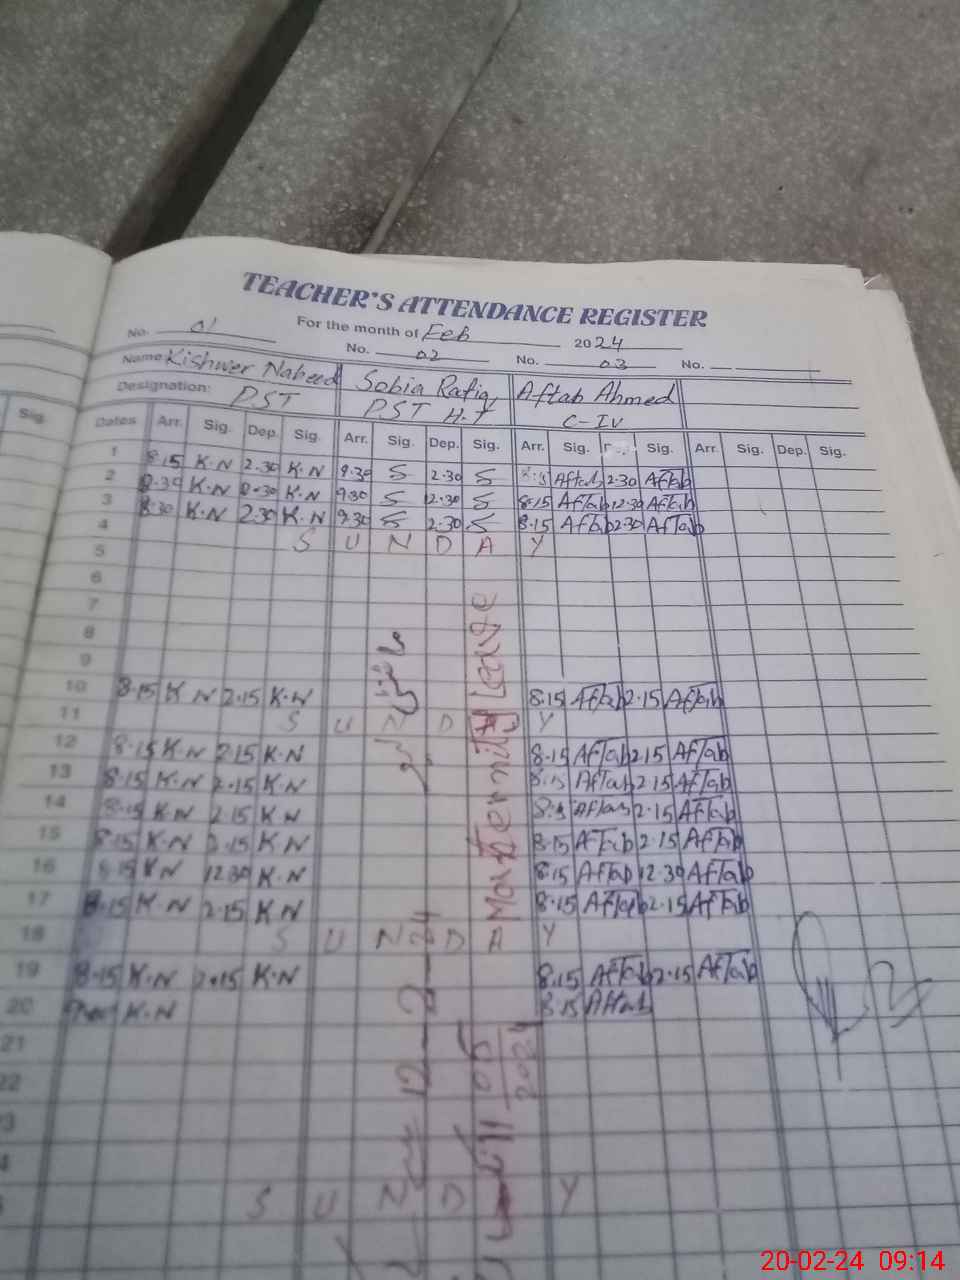 TEACHER'S ATTENDANCE REGISTER
For the month of Feb 2024
No. 01 No. 02 No. 03 No.
Name Kishwer Naheed Sobia Rafiq Aftab Ahmed
Designation: PST PST H.T C-IV
Sig.
Dates Arr. Sig. Dep. Sig. Arr. Sig. Dep. Sig. Arr. Sig. Sig. Arr. Sig. Dep. Sig.
1 8.15 K.N 2.30 K.N 9.30 S 2.30 S Aftab 2.30 AfTab
2 8.30 K.N K.N 9.30 S 12.30 S 8.15 AfTab 12.30 AfTab
3 8.30 K.N 2.30 K.N 9.30 S 2.30 S 8.15 AfTab 2.30 AfTab
4 S U N D A Y
5
6
7
8
9
10 8.15 K.N 2.15 K.N 8.15 AfTab 2.15 AfTab
11 S U N D A Y
12 8.15 K.N 2.15 K.N 8.15 AfTab 2.15 AfTab
13 8.15 K.N 2.15 K.N 8.15 AfTab 2.15 AfTab
14 8.15 K.N 2.15 K.N AfTab 2.15 AfTab
15 8.15 K.N 2.15 K.N 8.15 AfTab 2.15 AfTab
16 8.15 K.N 12.30 K.N 8.15 AfTab 12.30 AfTab
17 8.15 K.N 2.15 K.N 8.15 AfTab 2.15 AfTab
18 S U N D A Y
19 8.15 K.N 2.15 K.N 8.15 AfTab 2.15 AfTab
20 K.N 8.15 Aftab
21
22
S U N D Y
12-2-24
Leave
till 05
2024
20-02-24 09:14